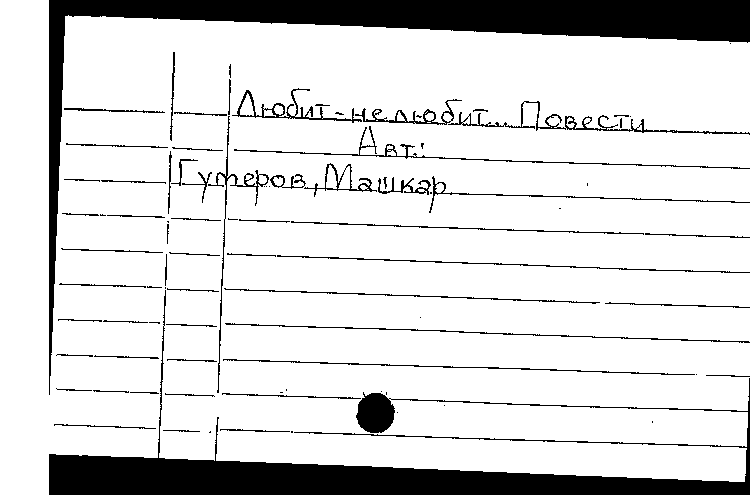 Любит-не любит... Повести
Авт.:
Гутеров, Машкар